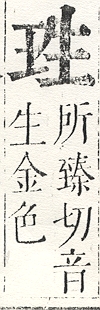 𤯷
所臻切音
生金色